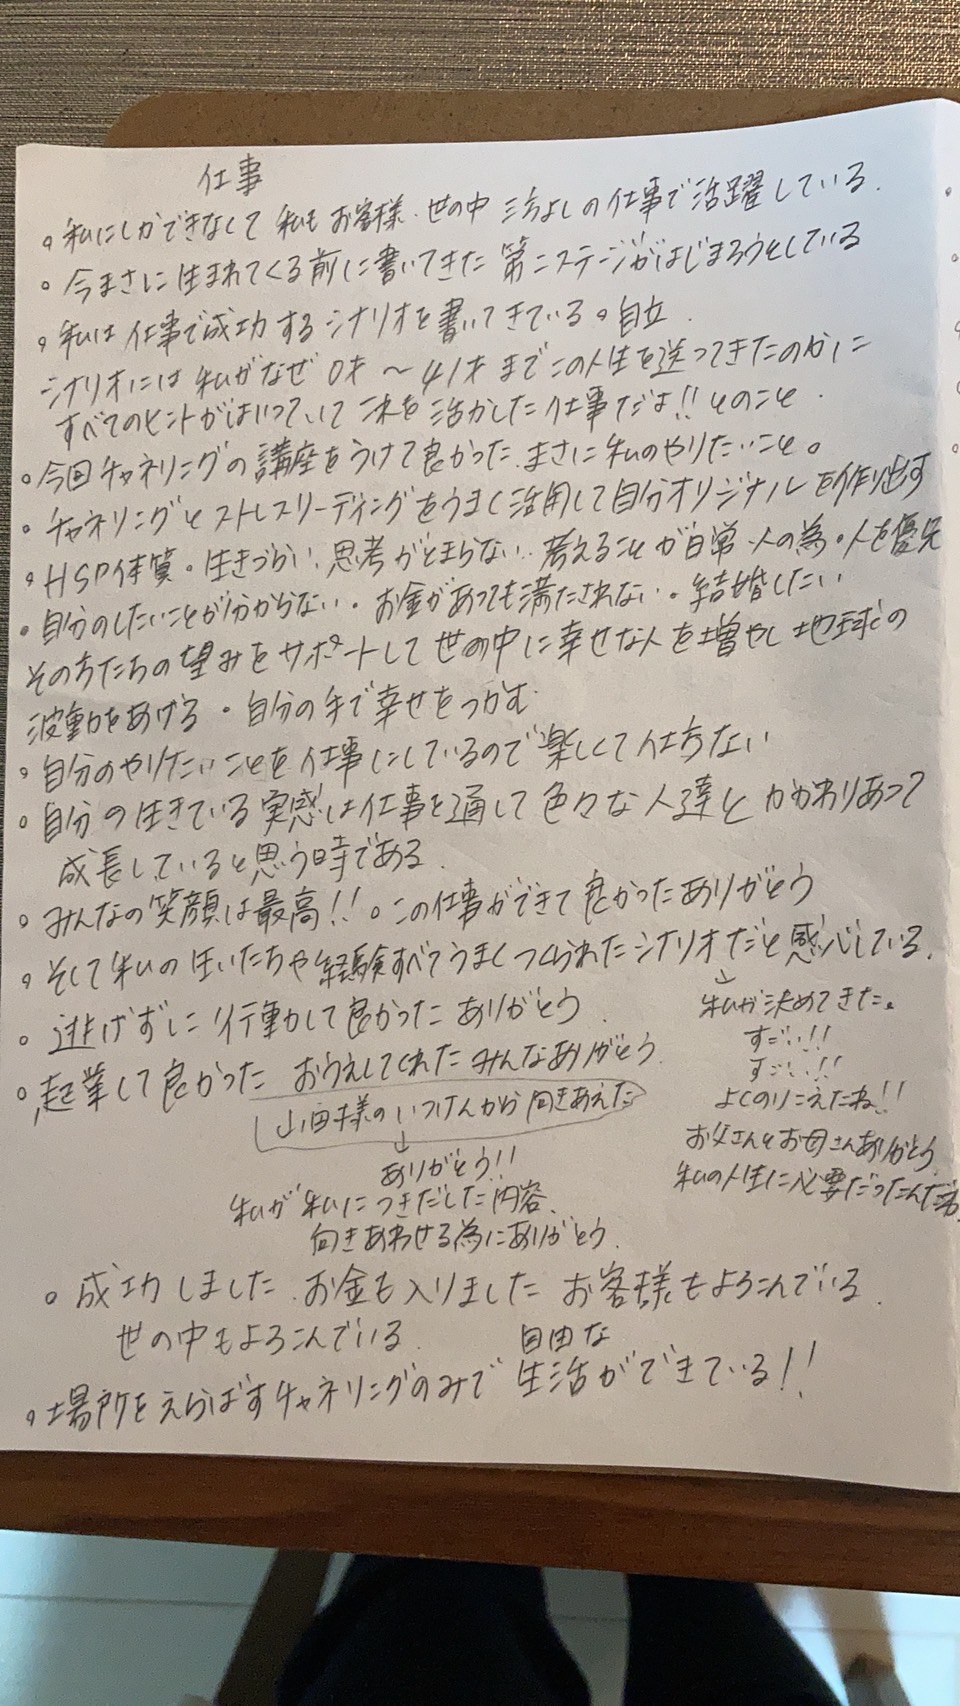 仕事
。私にしかできなくて 私も お客様、世の中 三方よしの仕事で活躍している.
。今まさに生まれてくる前に書いてきた 第二ステージがはじまろうとしている
。私は 仕事で成功するシナリオを書いてきている。自立.
シナリオには 私がなぜ 0才～41才までこの人生を送ってきたのかに
すべてのヒントがはいっていて これを活かした仕事だよ!! とのこと.
。今回チャネリングの講座をうけて良かった.まさに私のやりたいこと。
。チャネリングとストレスリーディングをうまく活用して自分オリジナルを作り出す
。HSP体質。生きづらい、思考がとまらない、考えることが日常、人の為。人を優先
。自分のしたいことが分からない。お金があっても満たされない。結婚したい
その方たちの望みをサポートして世の中に幸せな人を増やし地球の
波動をあげる。自分の手で幸せをつかむ
。自分のやりたいことを仕事にしているので楽しくて仕方ない
。自分の生きている実感は仕事を通して色々な人達とかかわりあって
成長していると思う時である.
。みんなの笑顔は最高!!。この仕事ができて良かったありがとう
。そして私の生いたちや経験すべてうまくつくられたシナリオだと感心している.
↓
私が決めてきた。
すごい!!
すごい!!
よくのりこえたね!!
お父さんとお母さんありがとう
私の人生に必要だったんだね.
。逃げずに行動して良かった ありがとう
。起業して良かった おうえんしてくれたみんなありがとう.
山田様のいっけんから向きあえた
↓
ありがとう!!
私が私につきだした内容.
向きあわせる為にありがとう.
。成功しました.お金も入りました お客様もよろこんでいる.
世の中もよろこんでいる
。場所をえらばずチャネリングのみで 自由な生活ができている!!